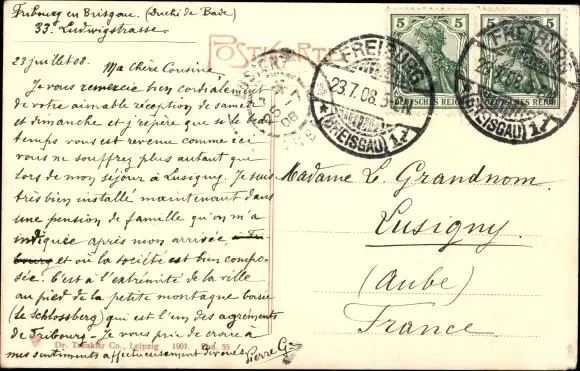 Fribourg en Brisgau. (Duché de Bade)
33. Ludwigstrasse.
23 juillet 08.
Ma Chère Cousine,
Je vous remercie bien cordialement
de votre aimable réception de samedi
et dimanche et j'espère que si le beau
temps vous est revenue comme ici
vous ne souffrez plus autant que
lors de mon séjour à Lusigny. Je suis
très bien installé maintenant dans
une pension de famille qu'on m'a
indiquée après mon arrivée,
et où la société est bien compo-
sée. C'est à l'extrémité de la ville
au pied de la petite montagne boisée
(le Schlossberg) qui est l'un des agréments
de Fribourg - Je vous prie de croire à
mes sentiments affectueusement dévoués. Pierre G.
Dr. Trenkler Co., Leipzig 1907. 55
POSTKARTE
LUSIGNY
08
5 5
DEUTSCHES REICH
FREIBURG
23.7.08.
(BREISGAU)
FREIBURG
23.7.08.
(BREISGAU)
Madame L. Grandnom.
Lusigny.
(Aube)
France